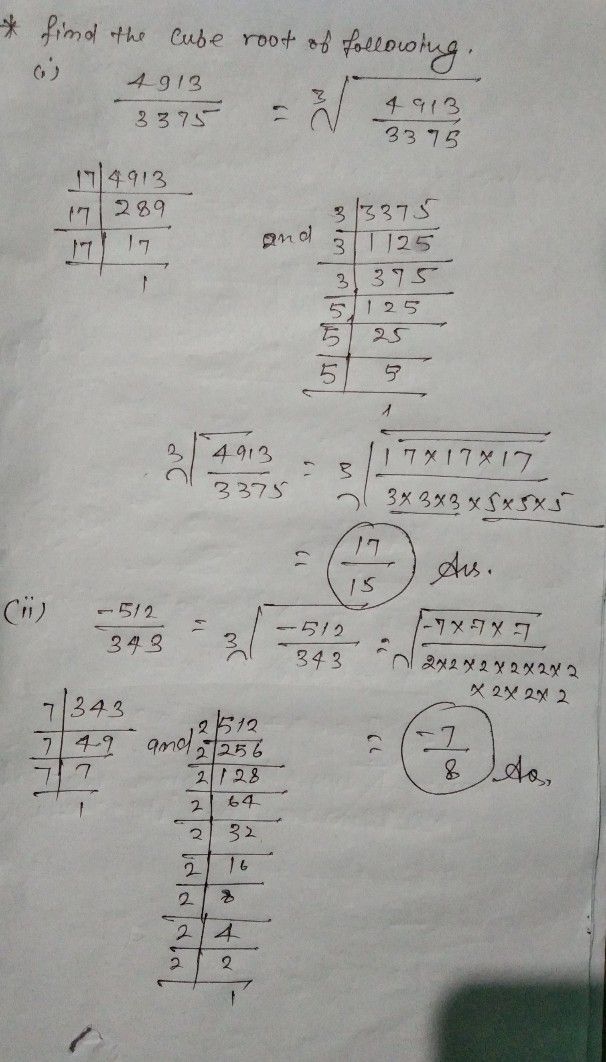 * find the cube root of following.
(i) 4913/3375 = ∛(4913/3375)
17|4913
17|289
17|17
1
and
3|3375
3|1125
3|375
5|125
5|25
5|5
1
∛(4913/3375) = ∛(17×17×17/3×3×3×5×5×5)
= 17/15 Ans.
(ii) -512/343 = ∛(-512/343) = ∛(-7×-7×-7/2×2×2×2×2×2
×2×2×2)
= -7/8 As,
7|343
7|49
7|7
1
and
2|512
2|256
2|128
2|64
2|32
2|16
2|8
2|4
2|2
1